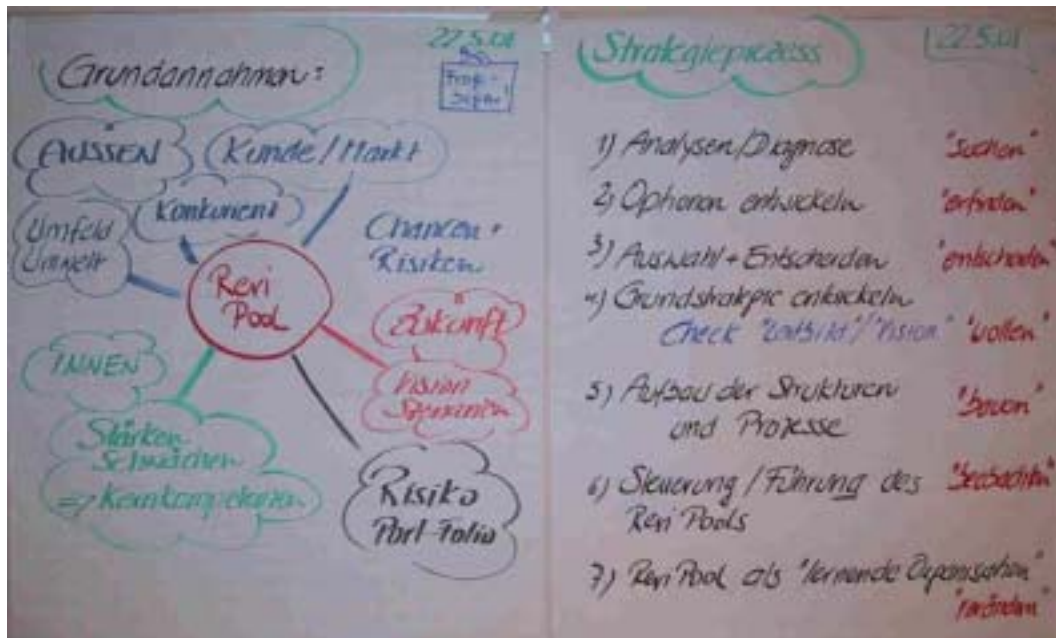 Grundannahmen:
22.5.01
AUSSEN
Kunde/Markt
Konkurrenz
Umfeld
Umwelt
Chancen +
Risiken
Revi
Pool
Zukunft
Vision
Szenarien
INNEN
Stärken
Schwächen
=> Kernkompetenzen
Risiko
Port-Folio
Strategieprozess
22.5.01
1) Analysen/Diagnose "suchen"
2) Optionen entwickeln "erfinden"
3) Auswahl + Entscheiden "entscheiden"
4) Grundstrategie entwickeln
Check "Leitbild"/"Vision" "wollen"
5) Aufbau der Strukturen
und Prozesse "bauen"
6) Steuerung/Führung des "beobachten"
Revi Pools
7) Revi Pool als "lernende Organisation"
"verändern"